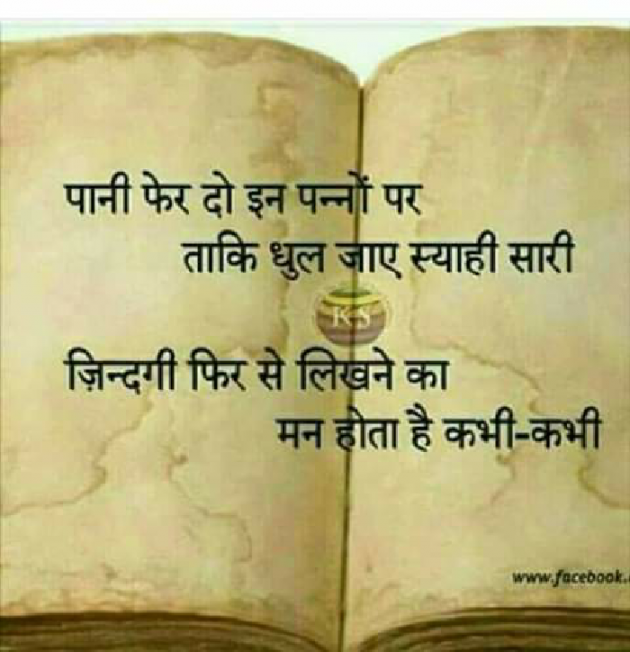 पानी फेर दो इन पन्नों पर
ताकि धुल जाए स्याही सारी
K S
ज़िन्दगी फिर से लिखने का
मन होता है कभी-कभी
www.facebook.